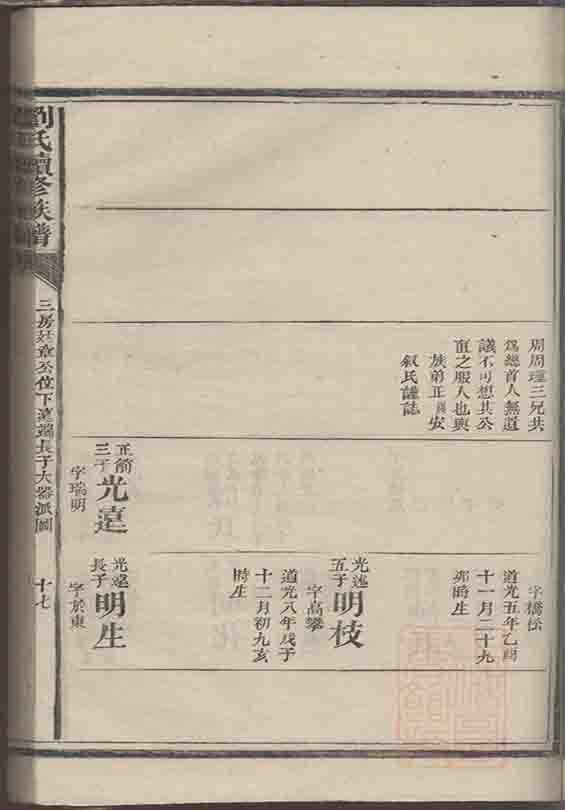 周周理三兄共
為總首人無道
議不可想其公
直之服人也與
族弟正 安
叙氏謹誌
正簡
三子
光遠
字瑞明
字橋松
道光五年乙酉
十一月二十九
卯時生
光遠
五子
明枝
字高攀
道光八年戊子
十二月初九亥
時生
光遠
長子
明生
字於東
劉氏續修族譜
三房廷章公位下遠端長子大器派圖
十七